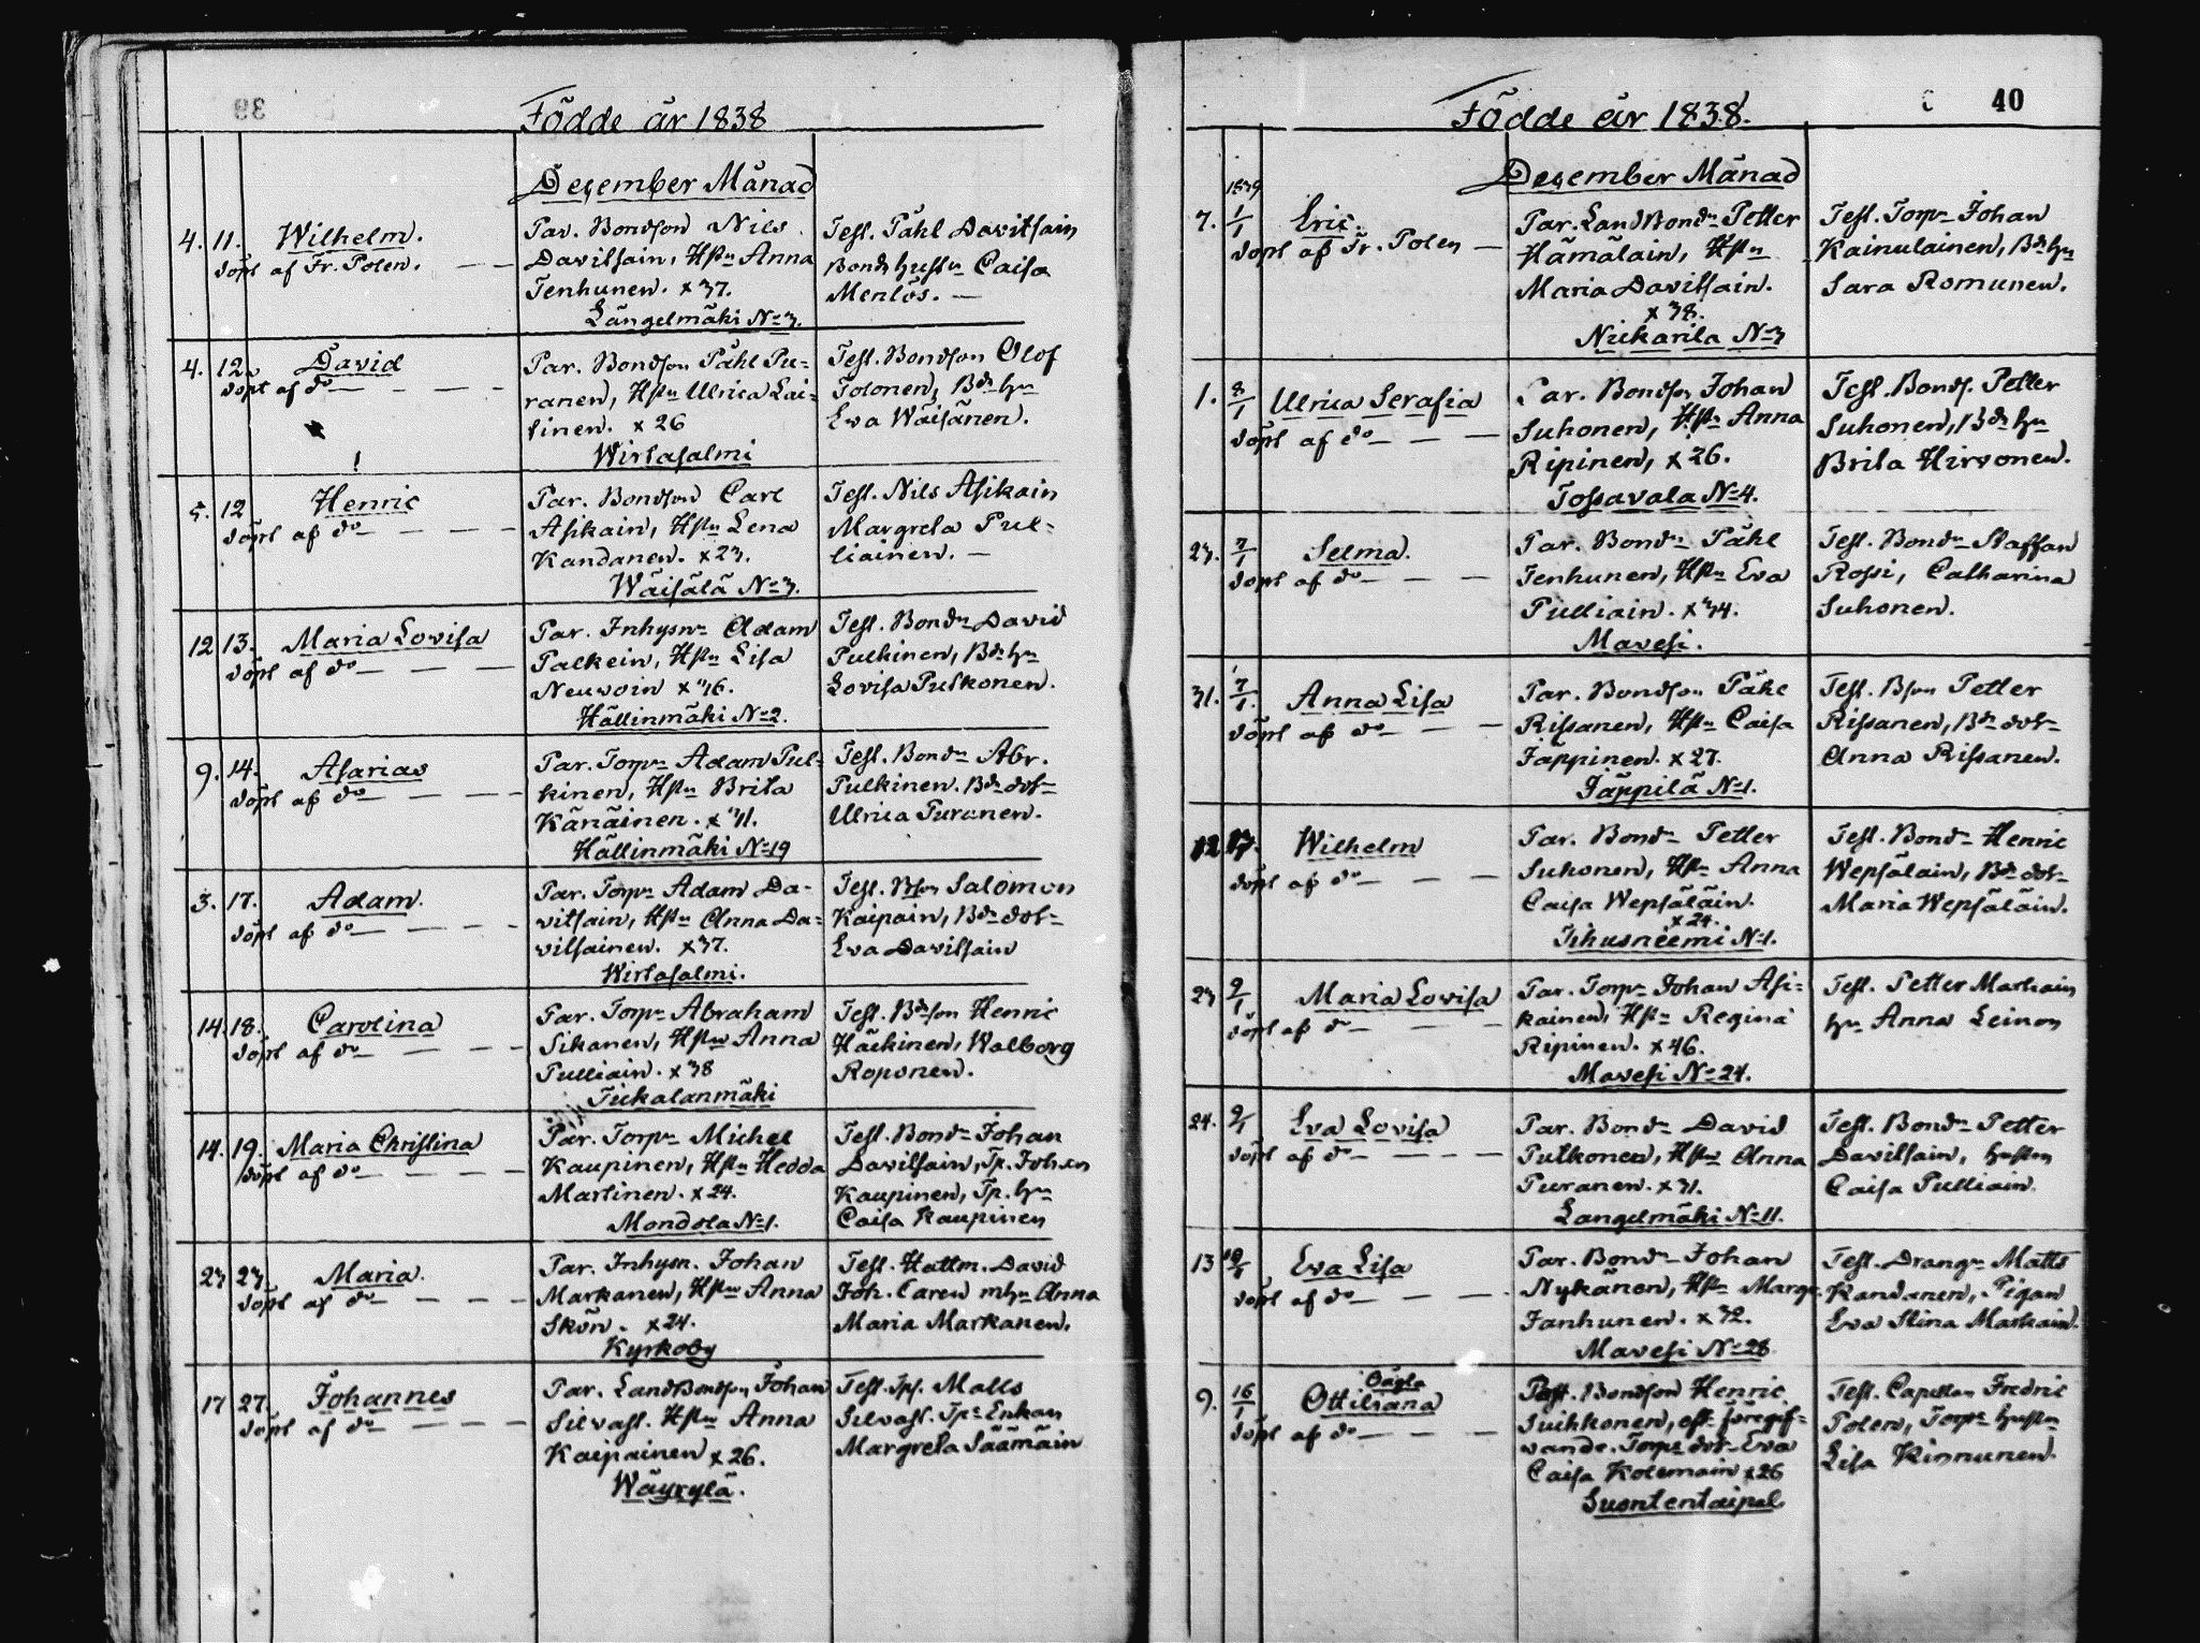 39
Födde år 1838
December Månad
4. 11. Wilhelm. Par. Bondson Nils
döpt af Fr. Polen. — — Davitsain, Hstn Anna
Tenhunen. x 37.
Längelmäki No 3.
Test. Påhl Davitsain
Bonds hustn Caisa
Menlös. —
4. 12. David
döpt af do — — — —
Par. Bondson Påhl Pu-
ranen, Hstn Ulrica Lai-
tinen. x 26
Wirtasalmi
Test. Bondson Olof
Tolonen, Bds hn
Eva Wäisänen.
5. 12 Henric
döpt af do — — — —
Par. Bondson Carl
Asikain, Hstn Lena
Kandanen. x 23.
Wäisälä No 3.
Test. Nils Asikain
Margreta Pul-
liainen. —
12 13. Maria Lovisa
döpt af do — — — —
Par. Inhysnr Adam
Palkein, Hstn Lisa
Neuvoin x 36.
Hällinmäki No 2.
Test. Bondn David
Pulkinen, Bds hn
Lovisa Pulkonen.
9. 14. Asarias
döpt af do — — — —
Par. Torpr Adam Pul-
kinen, Hstn Brita
Känäinen. x 31.
Hällinmäki No 19
Test. Bondn Abr.
Pulkinen. Bds dotr
Ulrica Puranen.
3. 17. Adam.
döpt af do — — — —
Par. Torpr Adam Da-
vitsain, Hstn Anna Da-
vitsainen. x 37.
Wirtasalmi.
Test. Bson Salomon
Kaipain, Bds dotr
Eva Davitsain
14 18. Carolina
döpt af do — — — —
Par. Torpr Abraham
Sikanen, Hstn Anna
Pulliain. x 38
Tiikalanmäki
Test. Bdson Henric
Häckinen, Walborg
Roponen.
14. 19. Maria Christina
döpt af do — — — —
Par. Torpr Michel
Kaupinen, Hstn Hedda
Martinen. x 24.
Mondola No 1.
Test. Bondn Johan
Davitsain, Tp. Johan
Kaupinen, Tp. hn
Caisa Kaupinen
23 23. Maria.
döpt af do — — — —
Par. Inhysn. Johan
Markanen, Hstn Anna
Skön. x 24.
Kyrkoby
Test. Hattm. David
Joh. Caren m hn Anna
Maria Markanen.
17 27. Johannes
döpt af do — — — —
Par. LandBondson Johan
Silvast. Hstn Anna
Kaipainen x 26.
Wäyrylä.
Test. Tps. Matts
Silvast. Tps Enkan
Margreta Säämäin
40
Födde år 1838.
December Månad
1839
7. 1/1 Eric.
döpt af Fr. Polen —
Par. LandBondn Petter
Hämäläin, Hstn
Maria Davitsain.
x 38.
Nickarila No 3
Test. Torpr Johan
Kainulainen, Bds hn
Sara Romunen.
1. 8/1 Ulrica Serafia
döpt af do — — —
Par. Bondson Johan
Suhonen, Hstn Anna
Ripinen, x 26.
Tossavala No 4.
Test. Bonds. Petter
Suhonen, Bds hn
Brita Hirvonen.
23. 7/1 Selma.
döpt af do — — —
Par. Bondn Påhl
Tenhunen, Hstn Eva
Pulliain. x 34.
Mavesi.
Test. Bondn Staffan
Rossi, Catharina
Suhonen.
31. 7/1. Anna Lisa
döpt af do — — —
Par. Bondson Påhl
Rissanen, Hstn Caisa
Jäppinen. x 27.
Jäppilä No 1.
Test. Bson Petter
Rissanen, Bds dotr
Anna Rissanen.
12 Wilhelm
döpt af do — — —
Par. Bondn Petter
Suhonen, Hstn Anna
Caisa Wepsäläin.
x 24.
Ichusniemi No 1.
Test. Bondn Henric
Wepsäläin, Bds dotr
Maria Wepsäläin.
23 9/1 Maria Lovisa
döpt af do — — —
Par. Torpr Johan Asi-
kainen, Hstn Regina
Ripinen. x 46.
Mavesi No 24.
Test. Petter Markain
hn Anna Leinon
24. 9/1 Eva Lovisa
döpt af do — — —
Par. Bondn David
Pulkonen, Hstn Anna
Puranen. x 31.
Langelmäki No 11.
Test. Bondn Petter
Davitsain, hustn
Caisa Pulliain.
13 Eva Lisa
döpt af do — — —
Par. Bondn Johan
Nykänen, Hstn Margr.
Janhunen. x 32.
Mavesi No 28
Test. Drangn Matts
Kandanen, Pigan
Eva Stina Markain.
9. 16/1 Oägta
Ottiliana
döpt af do — — —
Bondson Henric
Suihkonen, eft. föregif-
vande. Torps dotr Eva
Caisa Kolemain x 26
Suontentaipal
Test. Capellan Fredric
Polen, Torps hustn
Lisa Kinnunen.